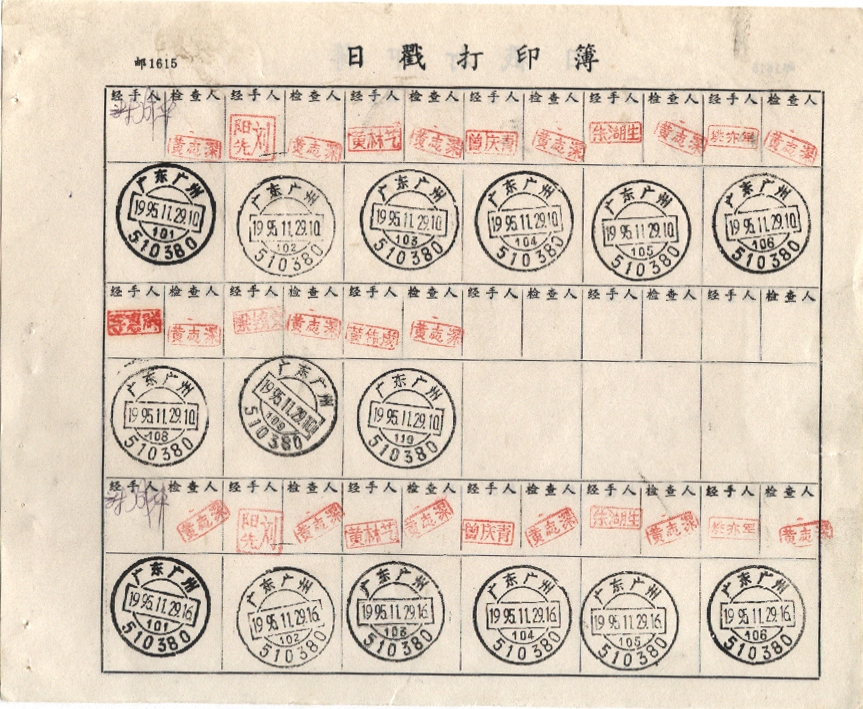 邮1615
日戳打印簿
经手人 检查人 经手人 检查人 经手人 检查人 经手人 检查人 经手人 检查人 经手人 检查人
黄志深 刘阳先 黄志深 黄林艺 黄志深 曾庆青 黄志深 朱湖生 黄志深 黄志深
广东广州 广东广州 广东广州 广东广州 广东广州 广东广州
1995.11.29.10 1995.11.29.10 1995.11.29.10 1995.11.29.10 1995.11.29.10 1995.11.29.10
101 102 103 104 105 106
510380 510380 510380 510380 510380 510380
经手人 检查人 经手人 检查人 经手人 检查人 经手人 检查人 经手人 检查人 经手人 检查人
黄志深 黄志深 黄志深
广东广州 广东广州 广东广州
1995.11.29.10 1995.11.29.10 1995.11.29.10
108 109 110
510380 510380 510380
经手人 检查人 经手人 检查人 经手人 检查人 经手人 检查人 经手人 检查人 经手人 检查人
黄志深 刘阳先 黄志深 黄林艺 黄志深 曾庆青 黄志深 朱湖生 黄志深 黄志深
广东广州 广东广州 广东广州 广东广州 广东广州 广东广州
1995.11.29.16 1995.11.29.16 1995.11.29.16 1995.11.29.16 1995.11.29.16 1995.11.29.16
101 102 103 104 105 106
510380 510380 510380 510380 510380 510380